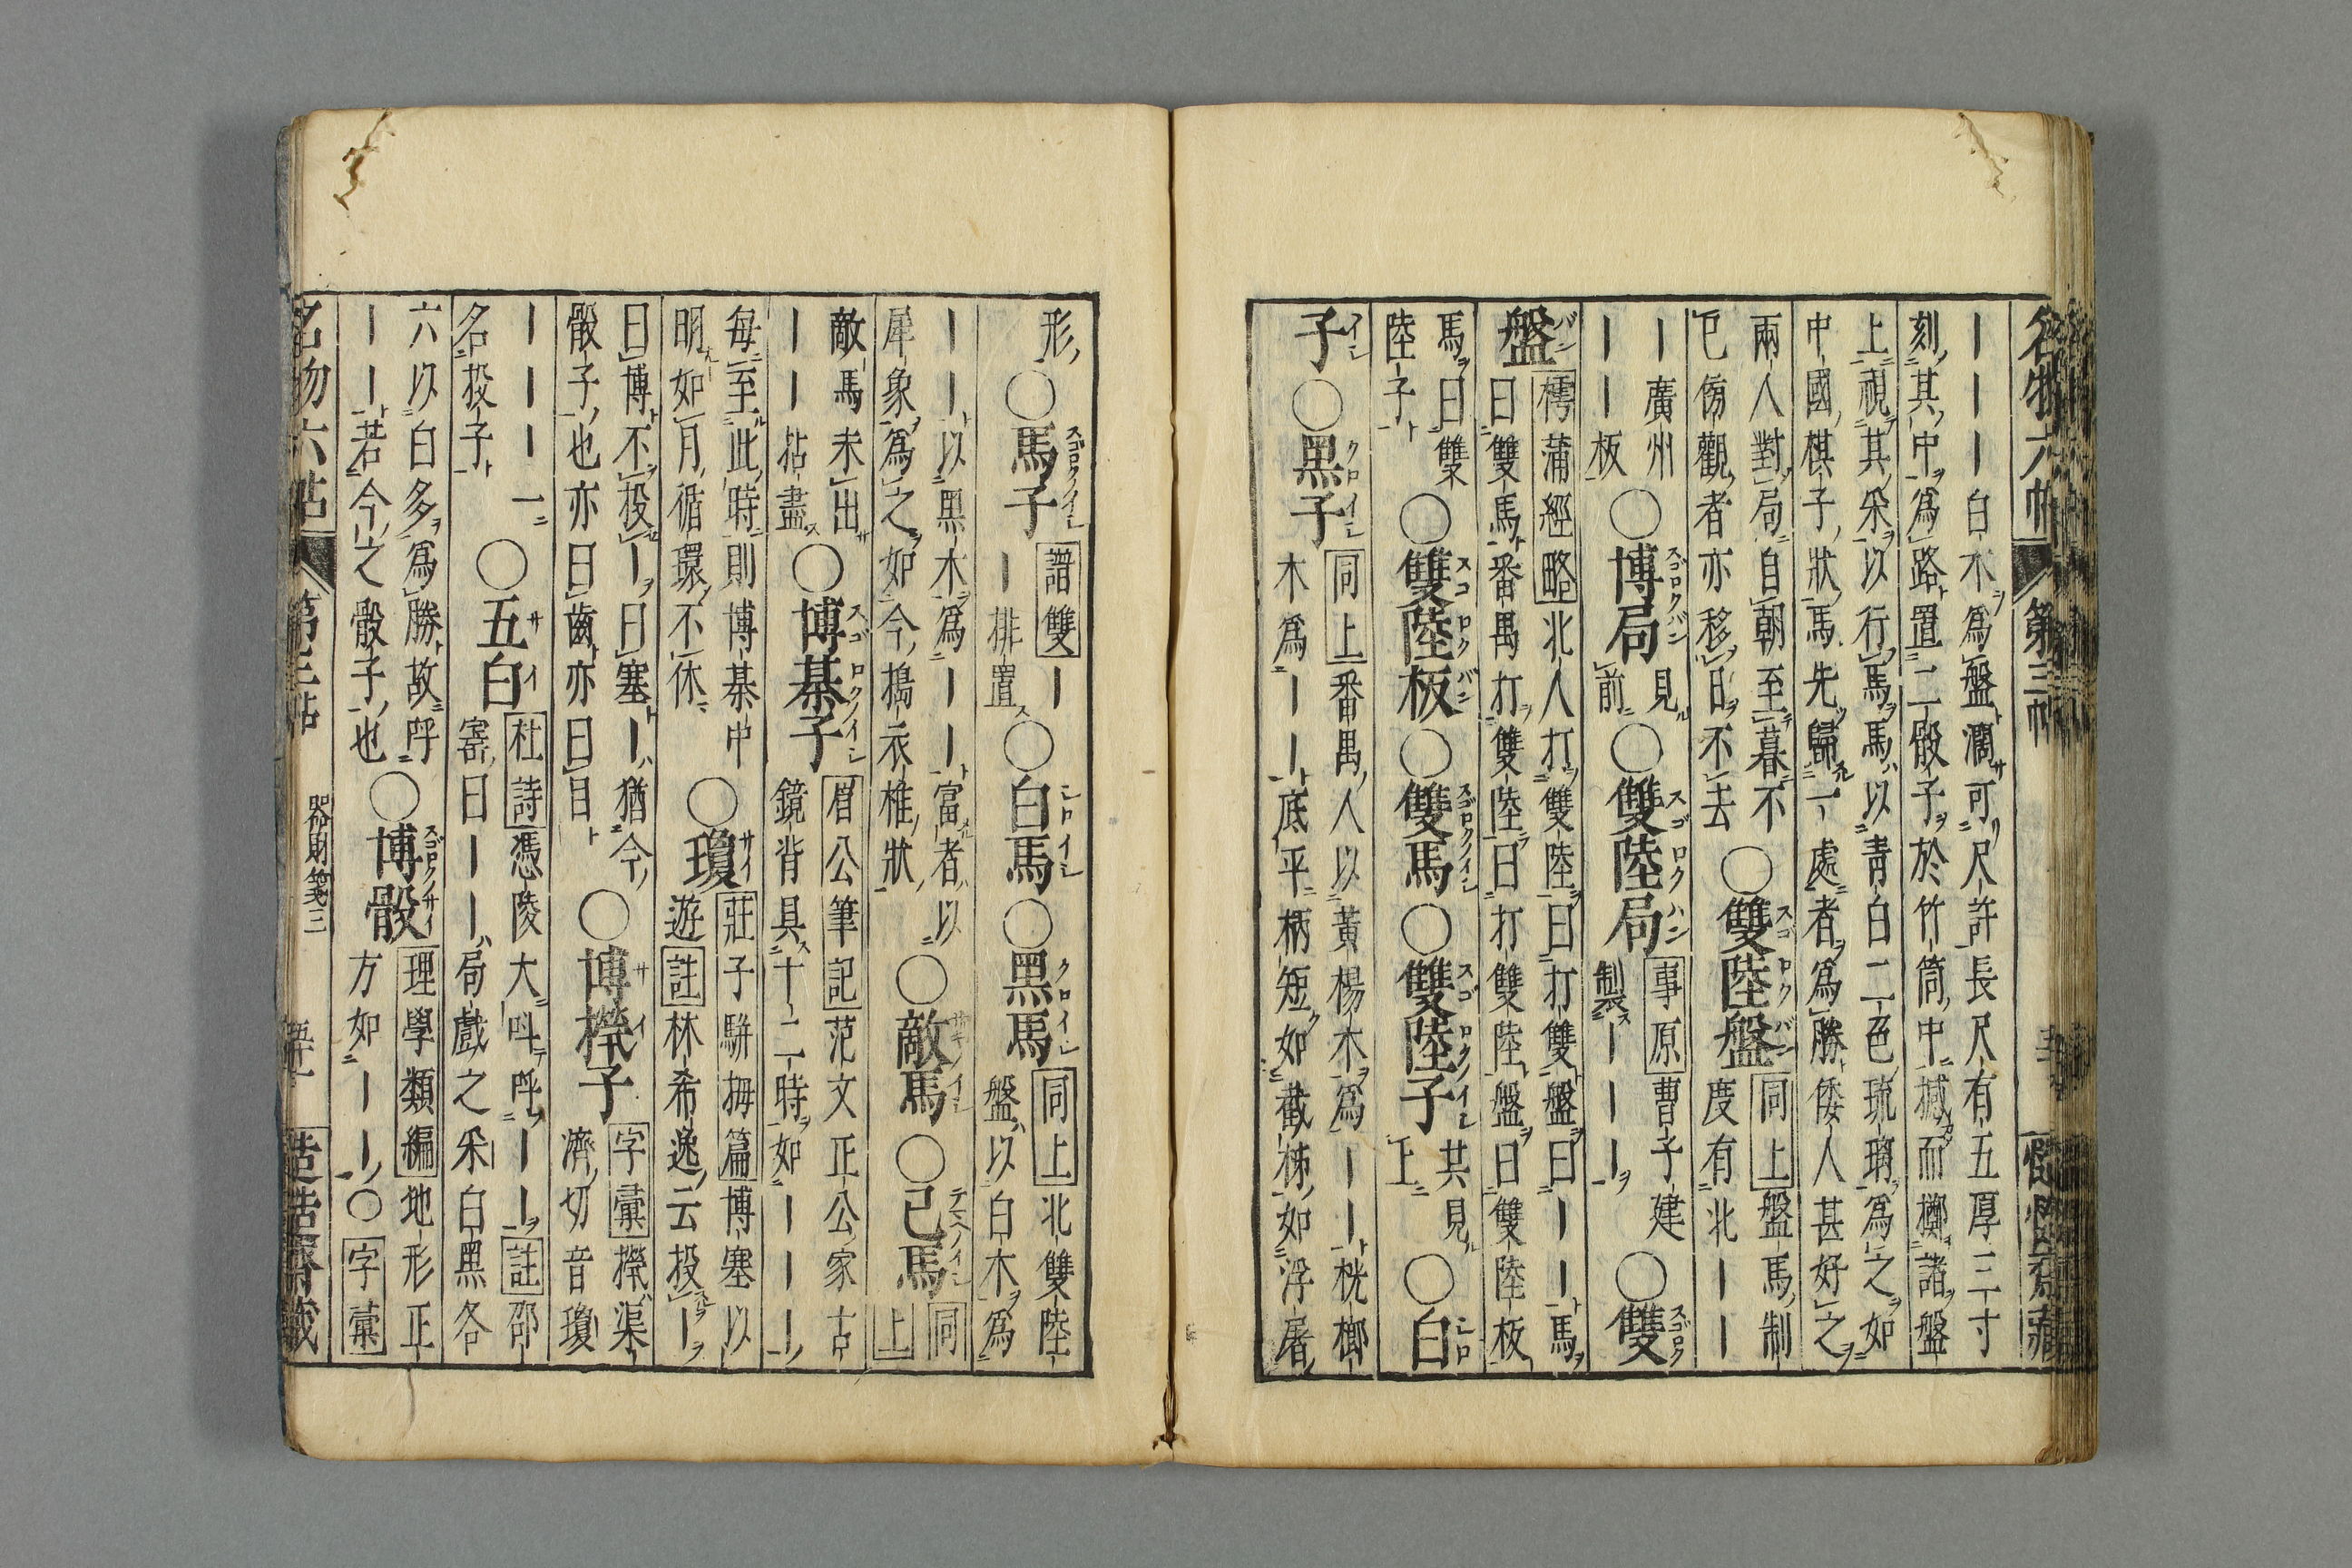 名物六帖 第三帖
｜｜｜白木爲盤濶可尺許長尺有五厚三寸
刻其中爲路置二骰子於竹筒中撼而擲諸盤
上視其采以行馬馬以青白二色琉璃爲之如
中國棋子狀馬先歸一處者爲勝倭人甚好之
兩人對局自朝至暮不
已傍觀者亦移日不去
○雙陸盤
同上盤馬制
度有北｜｜
｜廣州
｜｜板
○博局
見
前
○雙陸局
事原曹子建
製｜｜｜
○雙
盤
樗蒲經略北人打雙陸曰打雙盤曰｜｜馬
曰雙馬番禺打雙陸曰打雙陸盤曰雙陸板
馬曰雙
陸子
○雙陸板○雙馬○雙陸子
共見
上
○白
子○黑子
同上番禺人以黃楊木爲｜｜桄榔
木爲｜｜底平柄短如截柹如浮屠
形○馬子
譜雙｜
｜排置
○白馬○黑馬
同上北雙陸
盤以白木爲
｜｜以黑木爲｜｜富者以
犀象爲之如今搗衣椎狀
○敵馬○己馬
同
上
敵馬未出
｜｜拈盡
○博棊子
眉公筆記范文正公家古
鏡背具十二時如｜｜｜
每至此時則博棊中
明如月循環不休
○瓊
莊子駢拇篇博塞以
遊註林希逸云投｜
曰博不投｜曰塞｜猶今
骰子也亦曰齒亦曰目
○博㯳子
字彙㯳渠
濟切音瓊
｜｜｜一
名投子
○五白
杜詩憑陵大叫呼｜｜註邵
窰曰｜｜局戲之采白黑各
六以白多爲勝故呼
｜｜若今之骰子也
○博骰
理學類編地形正
方如｜｜○字彙
名物六帖 第三帖 器財箋三